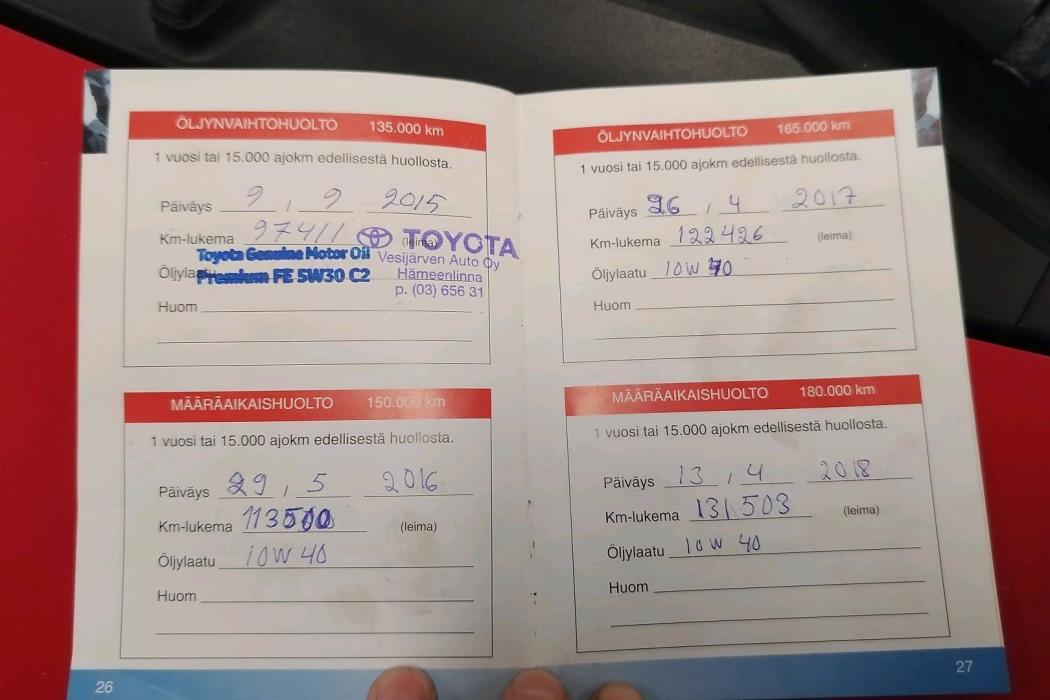 ÖLJYNVAIHTOHUOLTO 135.000 km
1 vuosi tai 15.000 ajokm edellisestä huollosta.
Päiväys 9 / 9 2015
Km-lukema 97411 (leima) TOYOTA
Toyota Genuine Motor Oil Vesijärven Auto Oy
Öljylaatu Premium FE 5W30 C2 Hämeenlinna
p. (03) 656 31
Huom
MÄÄRÄAIKAISHUOLTO 150.000 km
1 vuosi tai 15.000 ajokm edellisestä huollosta.
Päiväys 29 / 5 2016
Km-lukema (leima)
Öljylaatu 10W 40
Huom
26
ÖLJYNVAIHTOHUOLTO 165.000 km
1 vuosi tai 15.000 ajokm edellisestä huollosta.
Päiväys 26 / 4 2017
Km-lukema 122426 (leima)
Öljylaatu 10W 40
Huom
MÄÄRÄAIKAISHUOLTO 180.000 km
1 vuosi tai 15.000 ajokm edellisestä huollosta.
Päiväys 13 / 4 2018
Km-lukema 131503 (leima)
Öljylaatu 10W 40
Huom
27